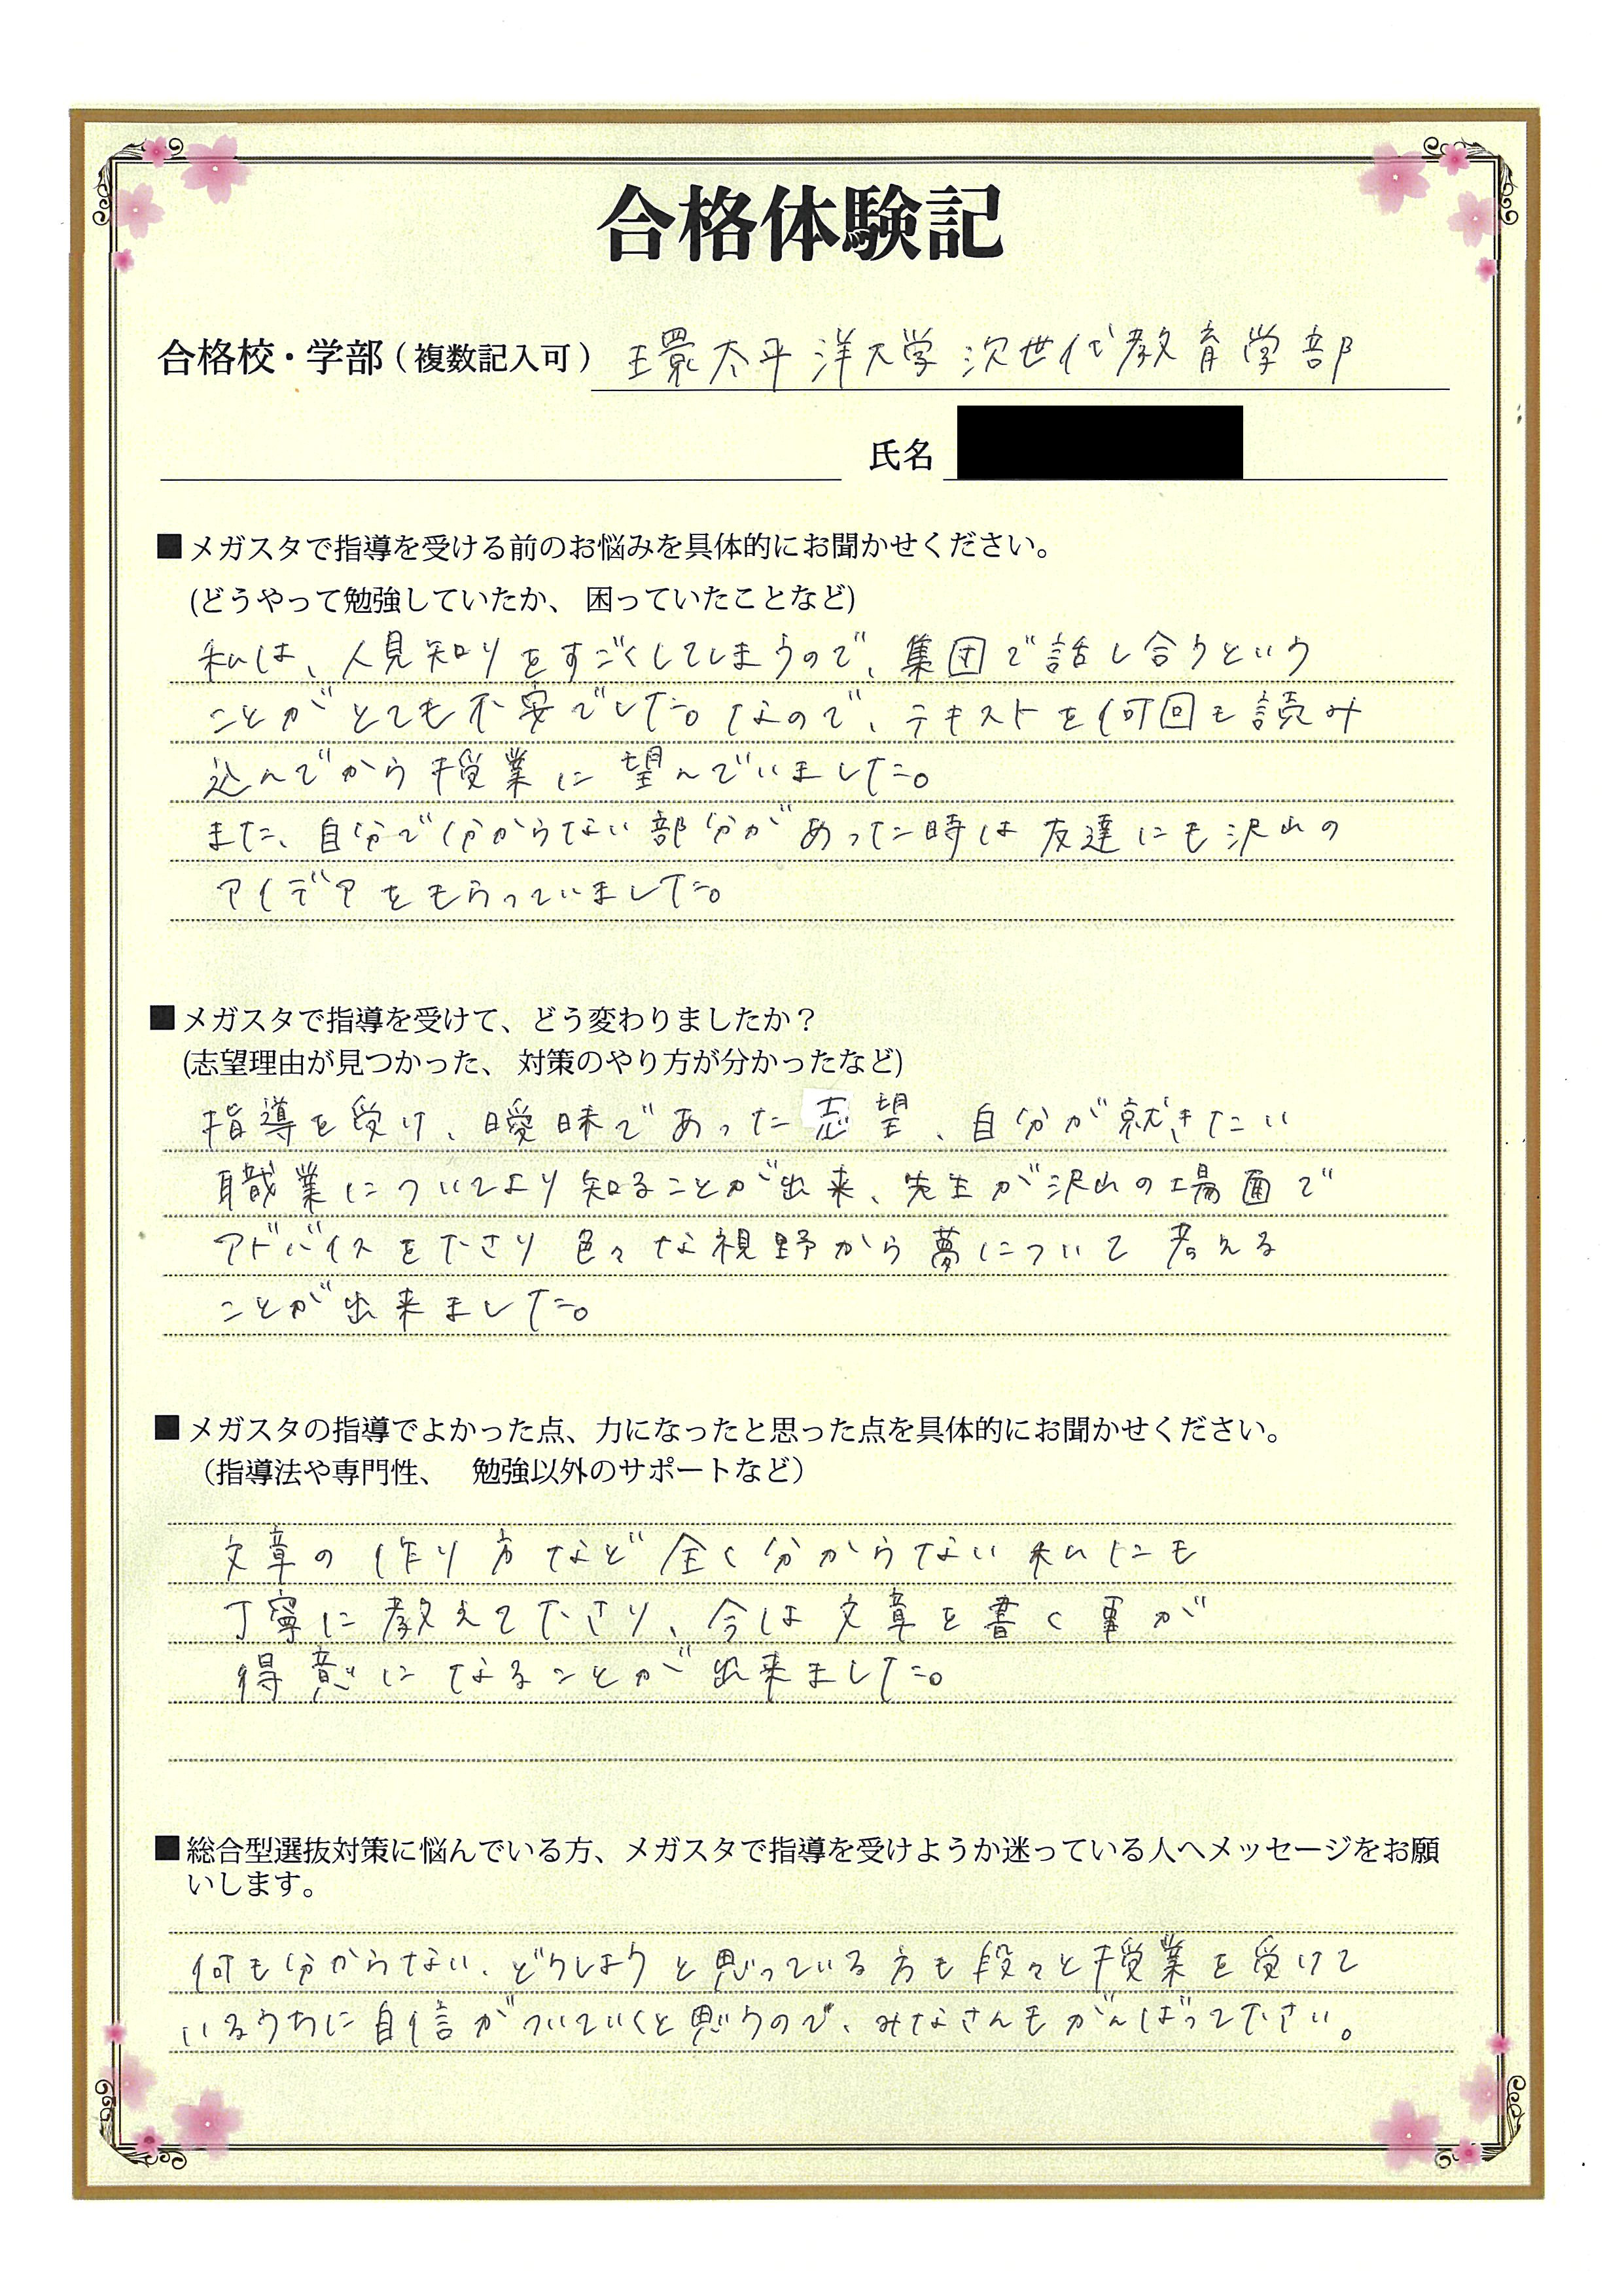 合格体験記
合格校・学部(複数記入可) 環太平洋大学次世代教育学部
氏名
■メガスタで指導を受ける前のお悩みを具体的にお聞かせください。
(どうやって勉強していたか、困っていたことなど)
私は、人見知りをすごくしてしまうので、集団で話し合うという
ことがとても不安でした。なので、テキストを何回も読み
込んでから授業に望んでいました。
また、自分で分からない部分があった時は友達にも沢山の
アイデアをもらっていました。
■メガスタで指導を受けて、どう変わりましたか？
(志望理由が見つかった、対策のやり方が分かったなど)
指導を受け、曖昧であった志望、自分が就きたい
職業についてより知ることが出来、先生が沢山の場面で
アドバイスを下さり色々な視野から夢について考える
ことが出来ました。
■メガスタの指導でよかった点、力になったと思った点を具体的にお聞かせください。
（指導法や専門性、 勉強以外のサポートなど）
文章の作り方など全く分からない私にも
丁寧に教えて下さり、今は文章を書く事が
得意になることが出来ました。
■総合型選抜対策に悩んでいる方、メガスタで指導を受けようか迷っている人へメッセージをお願
いします。
何も分からない、どうしようと思っている方も段々と授業を受けて
いるうちに自信がついていくと思うので、みなさんもがんばって下さい。